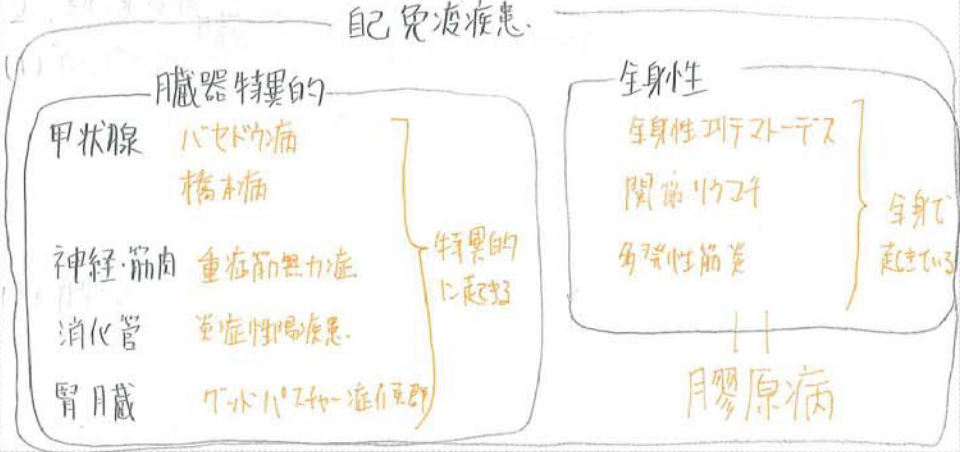 自己免疫疾患.
臓器特異的
甲状腺 バセドウ病
橋本病
神経・筋肉 重症筋無力症
消化管 炎症性腸疾患.
腎臓 グッドパスチャー症候群
特異的
に起きる
全身性
全身性エリテマトーデス
関節リウマチ
多発性筋炎
全身で
起きている
膠原病